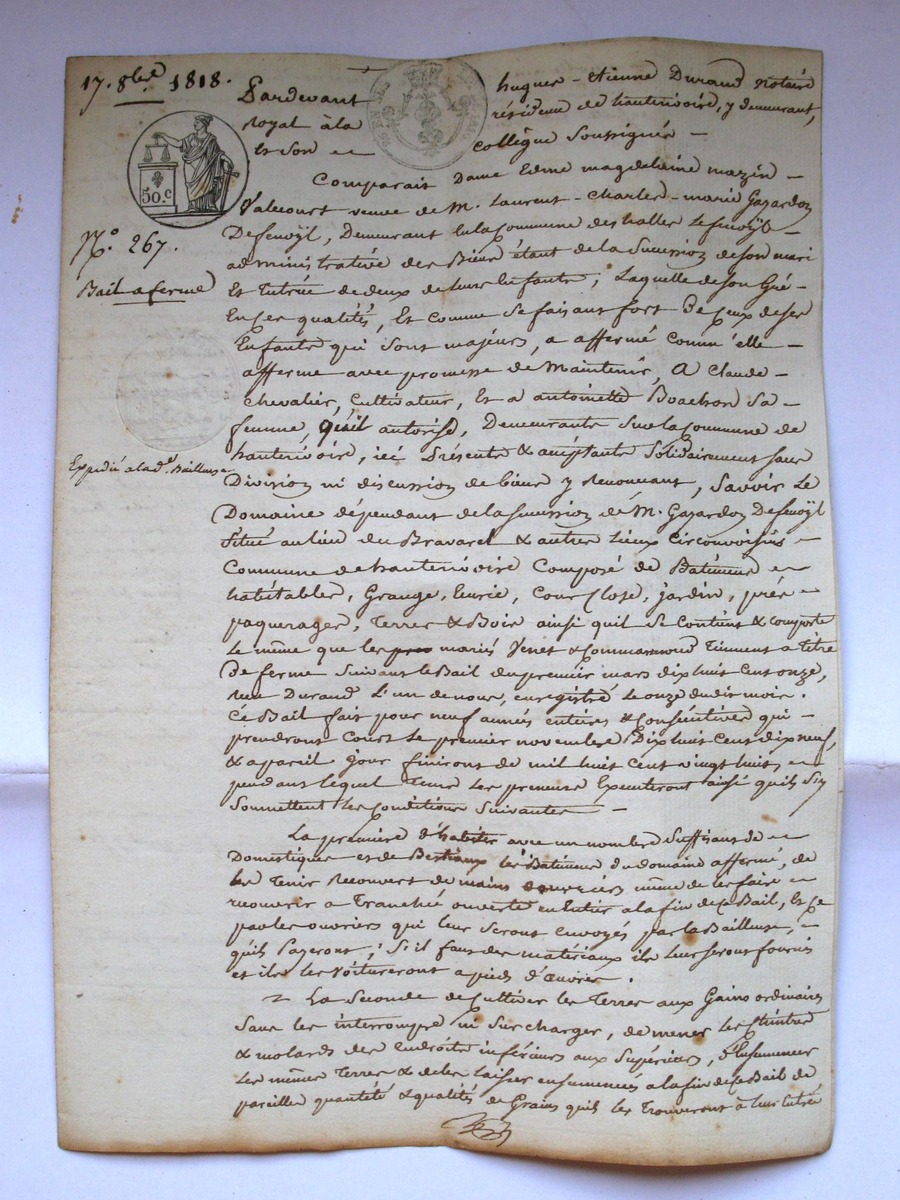 17. 8bre 1818.
Pardevant hugues - etienne Durand notaire
royal à la résidence de hauterivoire, y demeurant,
Et son collègue Soussignés -
50.c
Comparait Dame Edme magdelaine mazin -
Valcourt veuve de M. Laurent - Charles - marie Gazardon
N.o 267.
Defenoÿl, Demeurant en la Commune des halles Lefenoÿl -
administrative des Biens étant de la Succession de son mari
Bail a ferme
Et tutrice de deux de leurs Enfants ; Laquelle de son Gré -
En ses qualités, Et comme Se faisant fort De Ceux de ses
Enfants qui Sont majeurs, a affermé comm'elle -
afferme avec promesse de Maintenir, A Claude -
chevalier, Cultivateur, Et a antoinette Boachon Sa -
femme, qu'il autorise, Demeurants Sur la Commune de
Expedié a la de. Bailleuse
hauterivoire, ici Présents & acceptants Solidairement sans
Division ni discussion de biens y renonçant, Savoir Le
Domaine dépendant de la Succession de M. Gazardon Defenoÿl
Situé au lieu du Bravaret & autres Lieux Circonvoisins -
Commune de hauterivoire Composé de Batiments
habitables, Grange, Eurie, Cour Close, jardin, prés -
paquerages, Terres & Bois ainsi quil Se Contient & comporte
le même que les mariés Venet & Commarmond Tiennent a titre
De ferme Suivant le Bail du premier mars dix huit Cent onze,
Reçu Durand L'un de nous, enregistré le onze dudit mois.
Ce Bail fait pour neuf années entières & Conséutives qui -
prendront Cours Le premier novembre Dix huit Cent dix neuf,
& a pareil jour finiront de mil huit Cent vingt huit,
pendant lequel Tems Les preneurs Executeront ainsi quils S'y
Soummettent Les Conditions Suivantes -
La première d'habiter avec un nombre Suffisant de
Domestiques et de Bestiaux les Batiments du domaine affermé, de
les Tenir recouvert de mains douvriers même de les faire
recouvrir a Tranchée ouverte en Entier a la fin de ce Bail, Et ce
par les ouvriers qui leur Seront envoyés par la Bailleuse,
quils Payeront ; S'il faut des matériaux ils Leur Seront fournis
et ils les Voitureront a pieds d'œuvre.
2 La Seconde de Cultiver les Terres aux Gains ordinaires
Sans les interrompre ni Surcharger, de mener les Cheintres
& molards des endroits inférieurs aux Supérieurs, d'Ensemencer
Les mêmes Terres & de les Laisser ensemencées a la fin de ce Bail de
pareilles quantité & qualités de Grains quils les Trouveront à leur Entrée